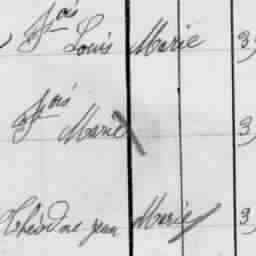 fois Louis Marie 3
fois Marie 3
Théodore jean Marie 3